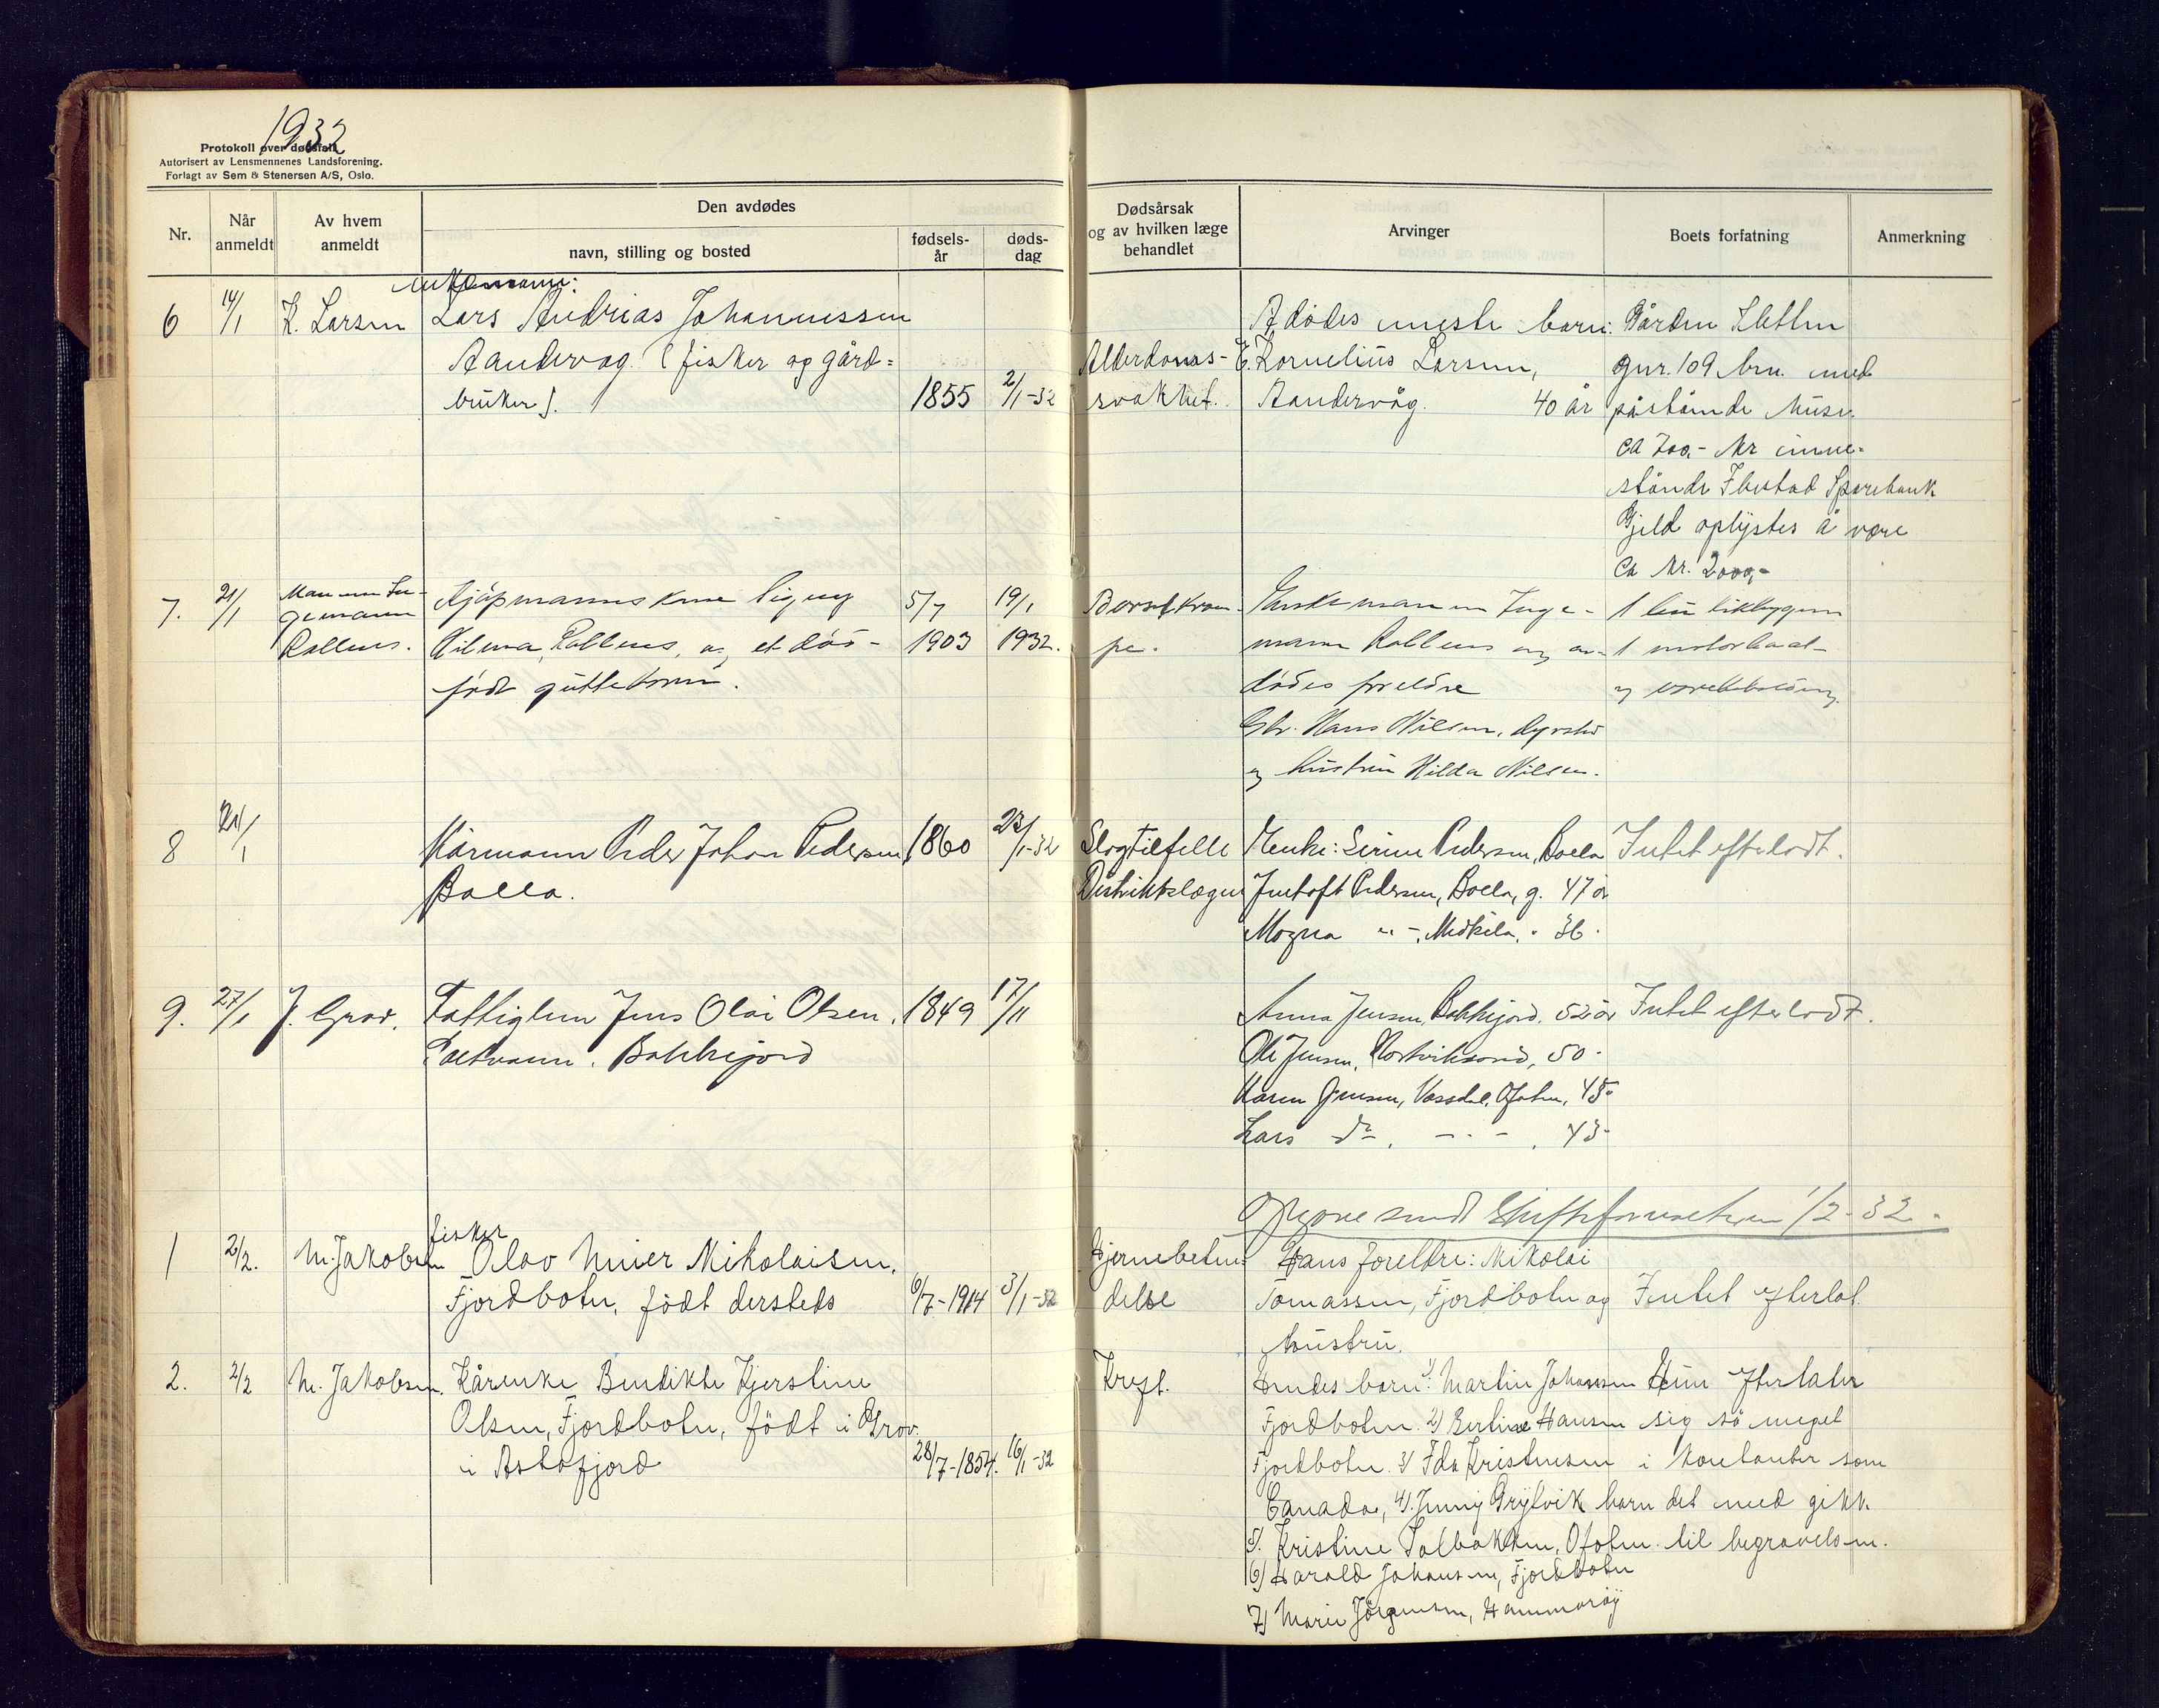 1932
Protokoll over dødsfall
Autorisert av Lensmennenes Landsforening.
Forlagt av Sem & Stenersen A/S, Oslo.
Nr.
Når anmeldt
Av hvem anmeldt
Den avdødes
navn, stilling og bosted
fødsels-år
døds-dag
Dødsårsak og av hvilken læge behandlet
Arvinger
Boets forfatning
Anmerkning
Enkemann:
6 14/1 K. Larsen Lars Andrias Johannessen
Aandervag. (fisker og gård=
bruker). 1855 2/1-32
Alderdoms-
svakhet.
Adødes eneste barn:
E. Kornelius Larsen,
Aandervåg. 40 år
Gården Sletten
gnr. 109 brn. med
påstående huse.
ca 700,- kr inne-
stånde Ibestad Sparebank
Gjeld oplystes å være
ca kr. 2000,-
7. 21/1 Mannen In-
gemann
Rollens.
Kjøpmannskone
Hilma Rollens, og et død-
født guttebarn.
5/7 1903 19/1 1932.
Barselkram-
pe.
Enkemannen Inge-
mann Rollens og av-
dødes foreldre
Gbr. Hans Nilsen, Dyrstad
og hustru Hilda Nilsen.
1 motorbaat
og varebeholdning
8 21/1 Kårmann Peder Johan Pedersen 1860 23/1-32
Bolla.
Slagtilfelle
Distriktslægen
Enke: Serine Pedersen, Bolla
Jentoft Pedersen, Bolla, g. 47 år
Magna -"-, Medkila, " 36 "
Intet efterladt.
9. 27/1 J. Grav. Fattiglem Jens Olai Olsen, 1849 17/11
Bakkejord
Anna Jensen, Bakkejord. 52 år
Ole Jensen, 50 "
Karen Jensen, Vassdal, Ofoten, 45 "
Lars do. - " - . 43 "
Intet efterladt.
Opgave sendt Skifteforvalteren 1/2-32.
1 2/2. M. Jakobsen fisker
Olav Meier Mikolaisen,
Fjordbotn, født dersteds 6/7-1914 3/1-32
Hjernebeten=
delse
Hans foreldre: Mikolai
Tomassen, Fjordbotn og
hustru.
Intet efterlat.
2. 2/2 M. Jakobsen. Kårenke Bendikte Kjerstine
Olsen, Fjordbotn, født i Grov.
i Astafjord 28/7-1854. 16/1-32
Kreft.
Hendes barn: 1) Martin Johansen
Fjordbotn. 2) Bertine Hansen
Fjordbotn. 3) Ida Kristensen
Canada, 4). Jenny Grytvik
5). Kristine Solbakken, Ofoten.
6) Harald Johansen, Fjordbotn
7) Marie Jørgensen, Hammarøy
Hun efterlater
sig så meget
i kontanter som
barn det med gikk
til begravelsen.